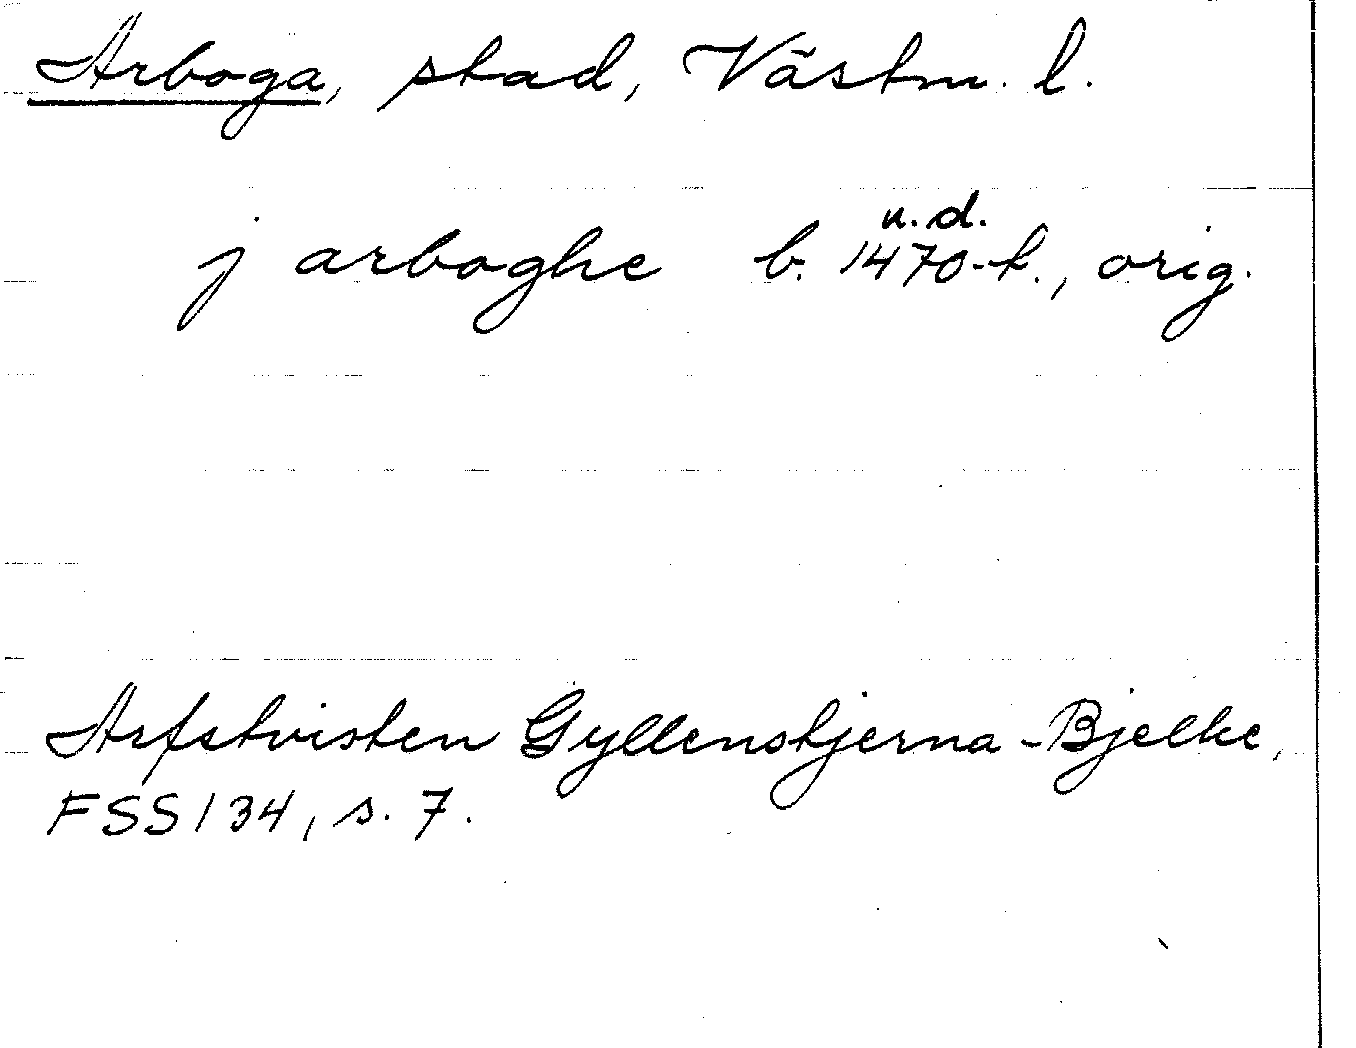 Arboga, stad, Västm. l.
u.d.
j arboghe b. 1470-t., orig.
Arfstvisten Gyllenstjerna-Bjelke,
FSS 134, s. 7.